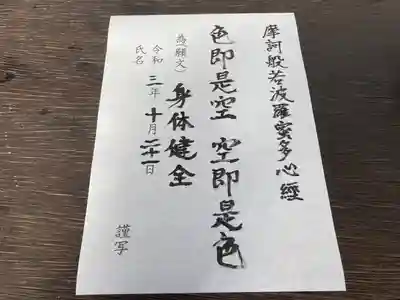 摩訶般若波羅蜜多心經
色即是空 空即是色
為(願文) 身体健全
令和 三年 十月 二十一日
氏名
謹写